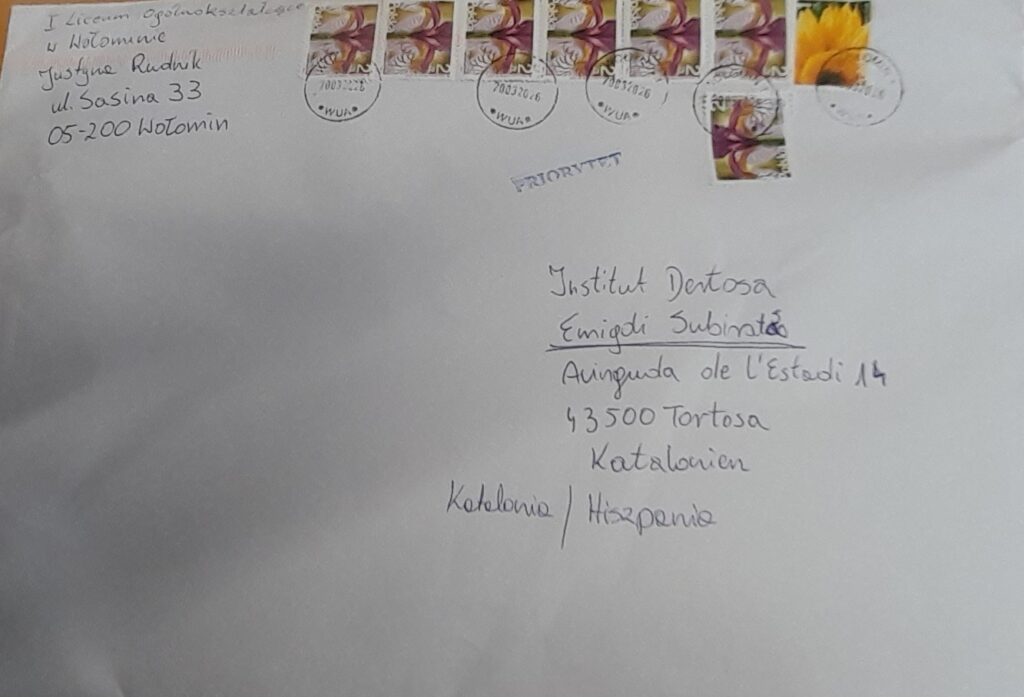 I Liceum Ogólnokształcące
w Wołominie
Justyna Rudnik
ul. Sasina 33
05-200 Wołomin
WUA
WUA
WUA
PRIORYTET
Institut Dertosa
Emigdi Subirats
Avinguda de l'Estadi 14
43500 Tortosa
Katalonien
Katalonia / Hiszpania